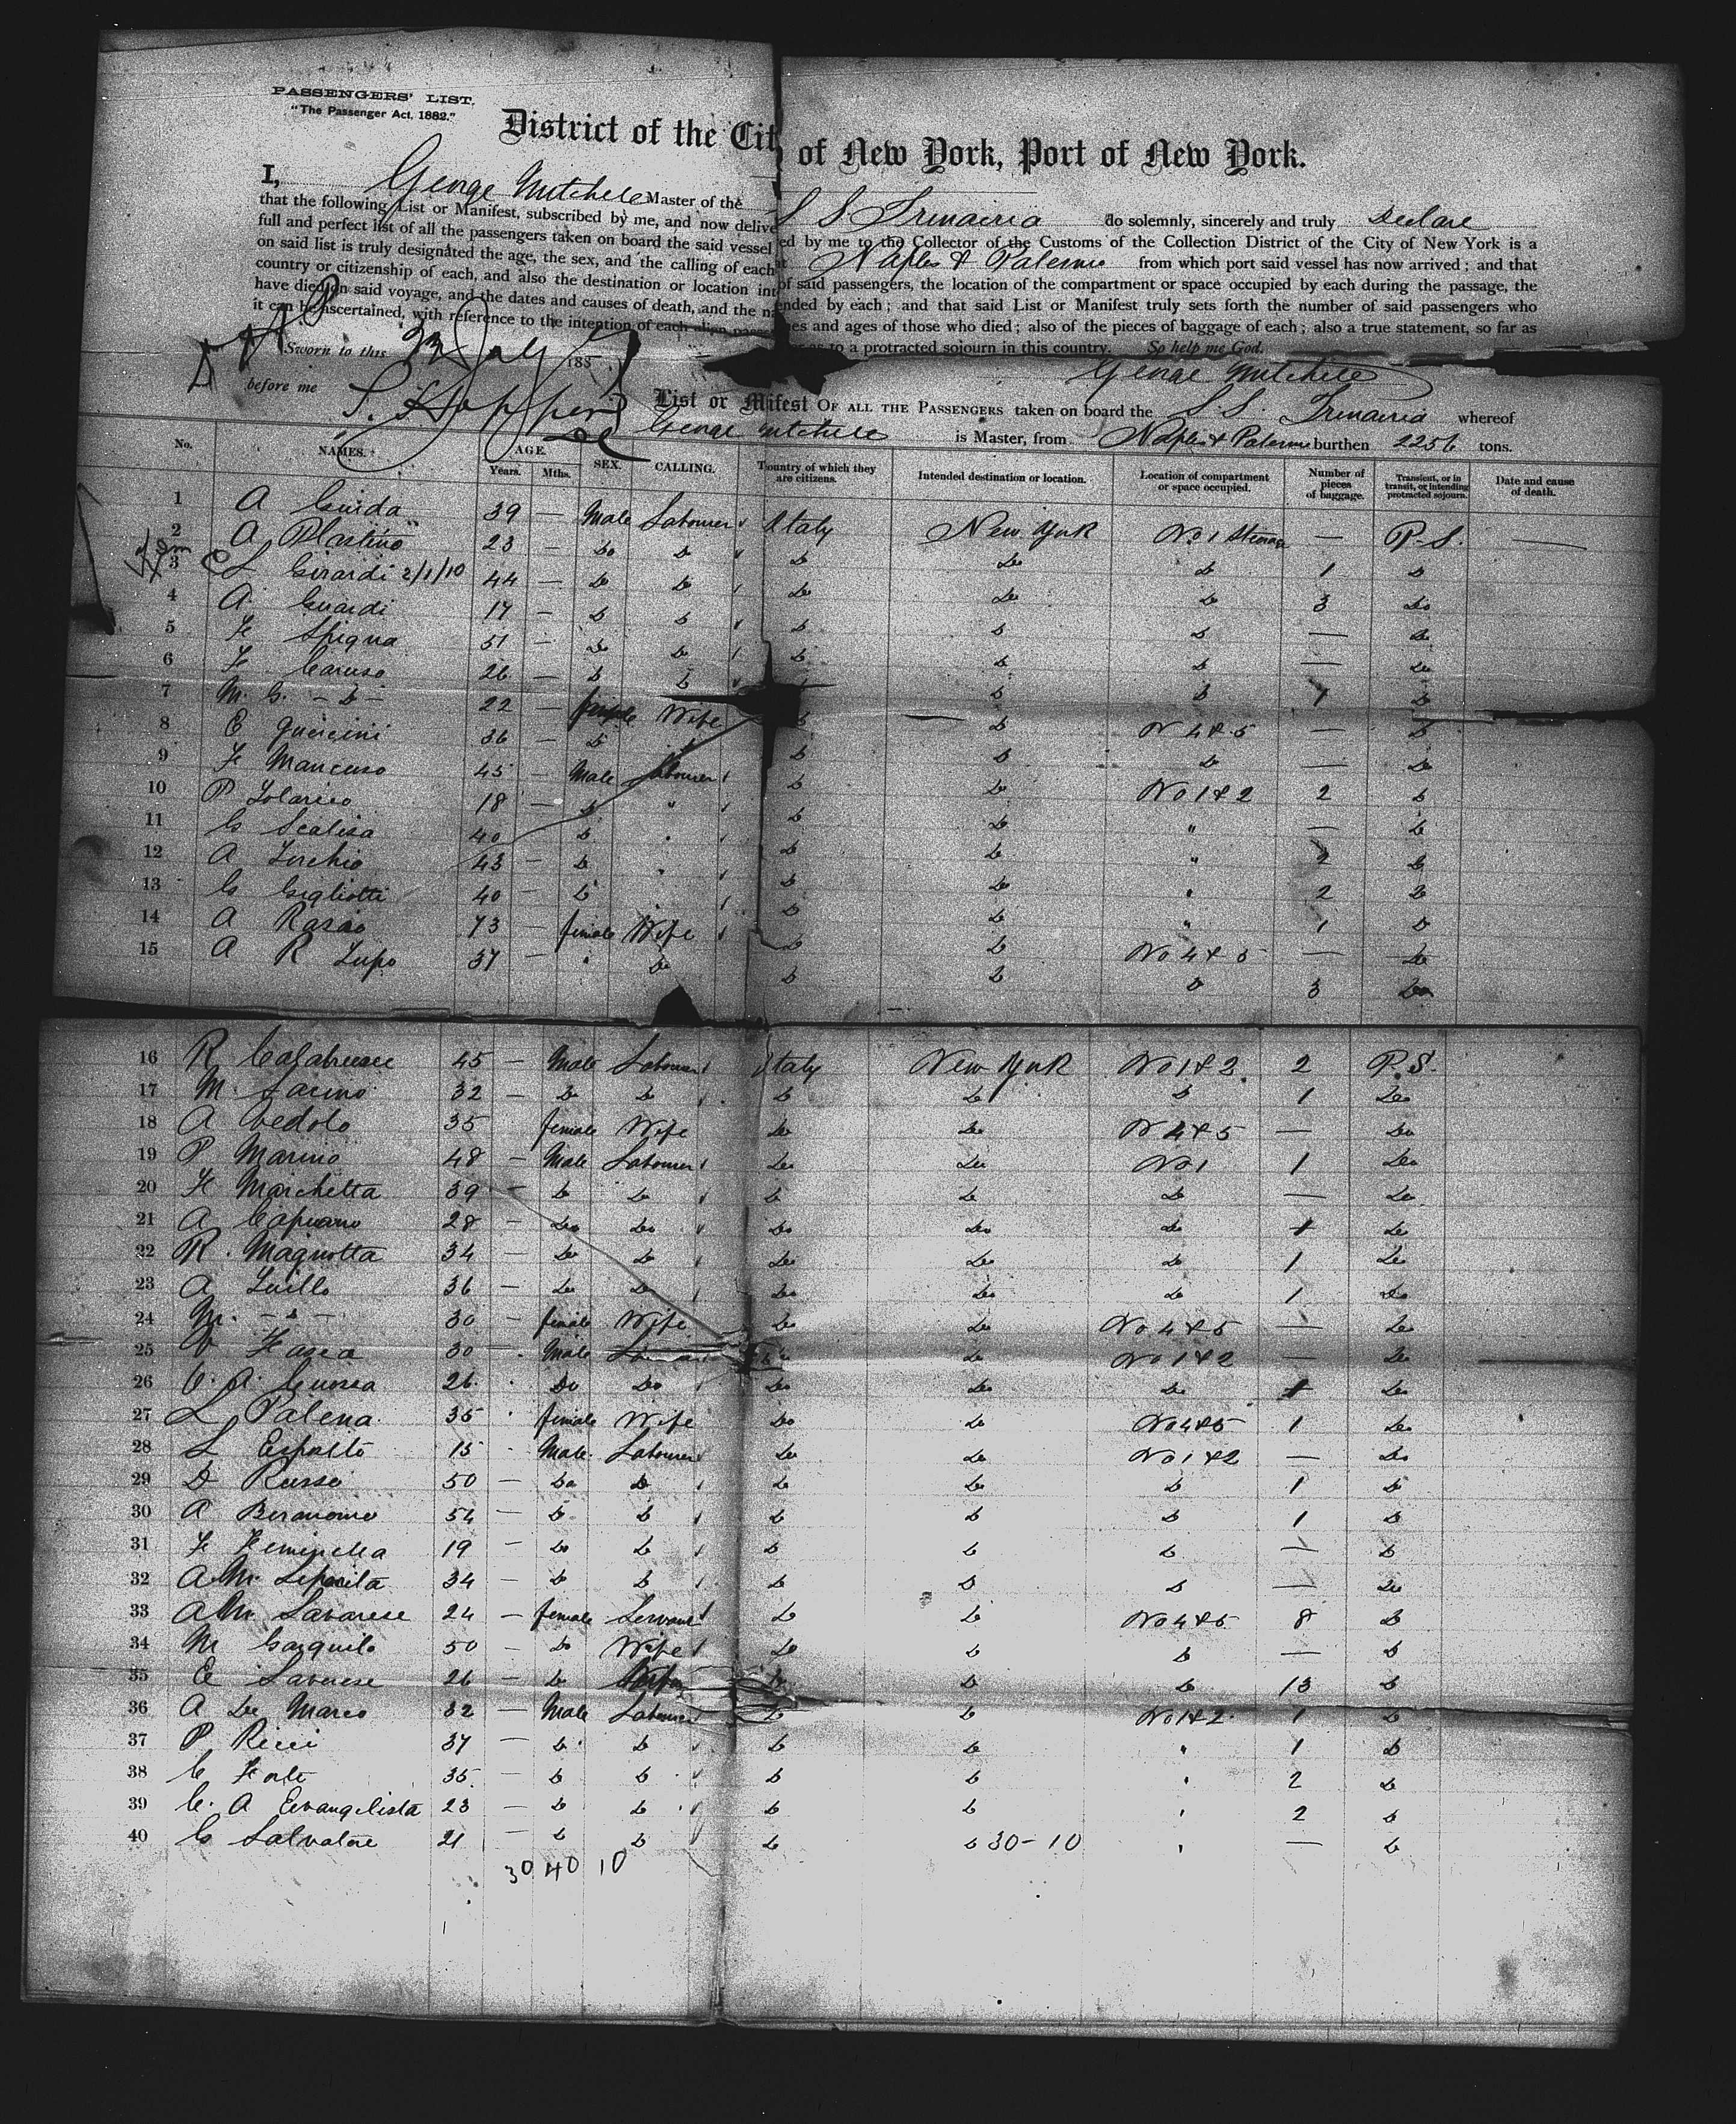 PASSENGERS' LIST.
"The Passenger Act, 1882."
District of the City of New York, Port of New York.
I, George Mitchell Master of the S S Trinacria do solemnly, sincerely and truly Declare
that the following List or Manifest, subscribed by me, and now delivered by me to the Collector of the Customs of the Collection District of the City of New York is a
full and perfect list of all the passengers taken on board the said vessel at Naples & Palermo from which port said vessel has now arrived; and that
on said list is truly designated the age, the sex, and the calling of each of said passengers, the location of the compartment or space occupied by each during the passage, the
country or citizenship of each, and also the destination or location intended by each; and that said List or Manifest truly sets forth the number of said passengers who
have died on said voyage, and the dates and causes of death, and the names and ages of those who died; also of the pieces of baggage of each; also a true statement, so far as
it can be ascertained, with reference to the intention of each alien passenger as to a protracted sojourn in this country. So help me God.
Sworn to this July 188
George Mitchell
before me
List or Manifest OF ALL THE PASSENGERS taken on board the S.S. Trinacria whereof
George Mitchell is Master, from Naples & Palermo burthen 2256 tons.
No. NAMES. AGE. Years. Mths. SEX. CALLING. Country of which they are citizens. Intended destination or location. Location of compartment or space occupied. Number of pieces of baggage. Transient, or in transit, or intending protracted sojourn. Date and cause of death.
1 A Guida 39 — Male Labourer Italy New York No 1 — P.S. —
2 A Plastino 23 — Do Do Do Do Do 1 Do
3 L Girardi 2/1/10 44 — Do Do Do Do Do 3 Do
4 A. Girardi 17 — Do Do Do Do Do — Do
5 F Spigna 51 — Do Do Do Do Do — Do
6 F Caruso 26 — Do Do Do Do Do 1 Do
7 M. G. - Do - 22 — female Wife Do Do No 4 & 5 — Do
8 E Guercini 36 — Do Do Do Do — Do
9 F Mancuso 45 — Male Labourer Do Do No 1 & 2 2 Do
10 P 18 — Do " Do Do " — Do
11 G Scalisa 40 — Do " Do Do " 2 Do
12 A 43 — Do " Do Do " 2 Do
13 G Gigliotti 40 — Do Do Do " 1 Do
14 A 73 — female Wife Do Do No 4 & 5 — Do
15 A R Lupo 37 — " Do Do Do Do 3 Do
16 R Calabrese 45 — Male Labourer Italy New York No 1 & 2 2 P.S.
17 M. 32 — Do Do Do Do Do 1 Do
18 A Vedolo 35 female Wife Do Do No 4 & 5 — Do
19 P Marino 48 — Male Labourer Do Do No 1 1 Do
20 F Marchetta 39 — Do Do Do Do Do — Do
21 A 28 — Do Do Do Do Do 1 Do
22 R. Magnotta 34 — Do Do Do Do Do 1 Do
23 A 36 — Do Do Do Do Do 1 Do
24 M. - Do - 30 — female Wife Do Do No 4 & 5 — Do
25 V Fasca 30 Male Labourer Do Do No 1 & 2 — Do
26 C. A. 26 Do Do Do Do Do 1 Do
27 L Palena 35 female Wife Do Do No 4 & 5 1 Do
28 L 15 Male Labourer Do Do No 1 & 2 — Do
29 D Russo 50 — Do Do Do Do Do 1 Do
30 A 54 — Do Do Do Do Do 1 Do
31 F 19 — Do Do Do Do Do — Do
32 A.M. 34 — Do Do Do Do Do — Do
33 A M Savarese 24 — female Servant Do Do No 4 & 5 8 Do
34 M Garguilo 50 — Do Wife Do Do Do — Do
35 E Savarese 26 — Do Do Do Do 13 Do
36 A De Marco 32 — Male Labourer Do Do No 1 & 2 1 Do
37 P Ricci 37 — Do Do Do Do " 1 Do
38 C Forte 35 — Do Do Do Do " 2 Do
39 C. A Evangelista 23 — Do Do Do Do " 2 Do
40 G Salvatore 21 — Do Do Do Do 30-10 " — Do
30 40 10